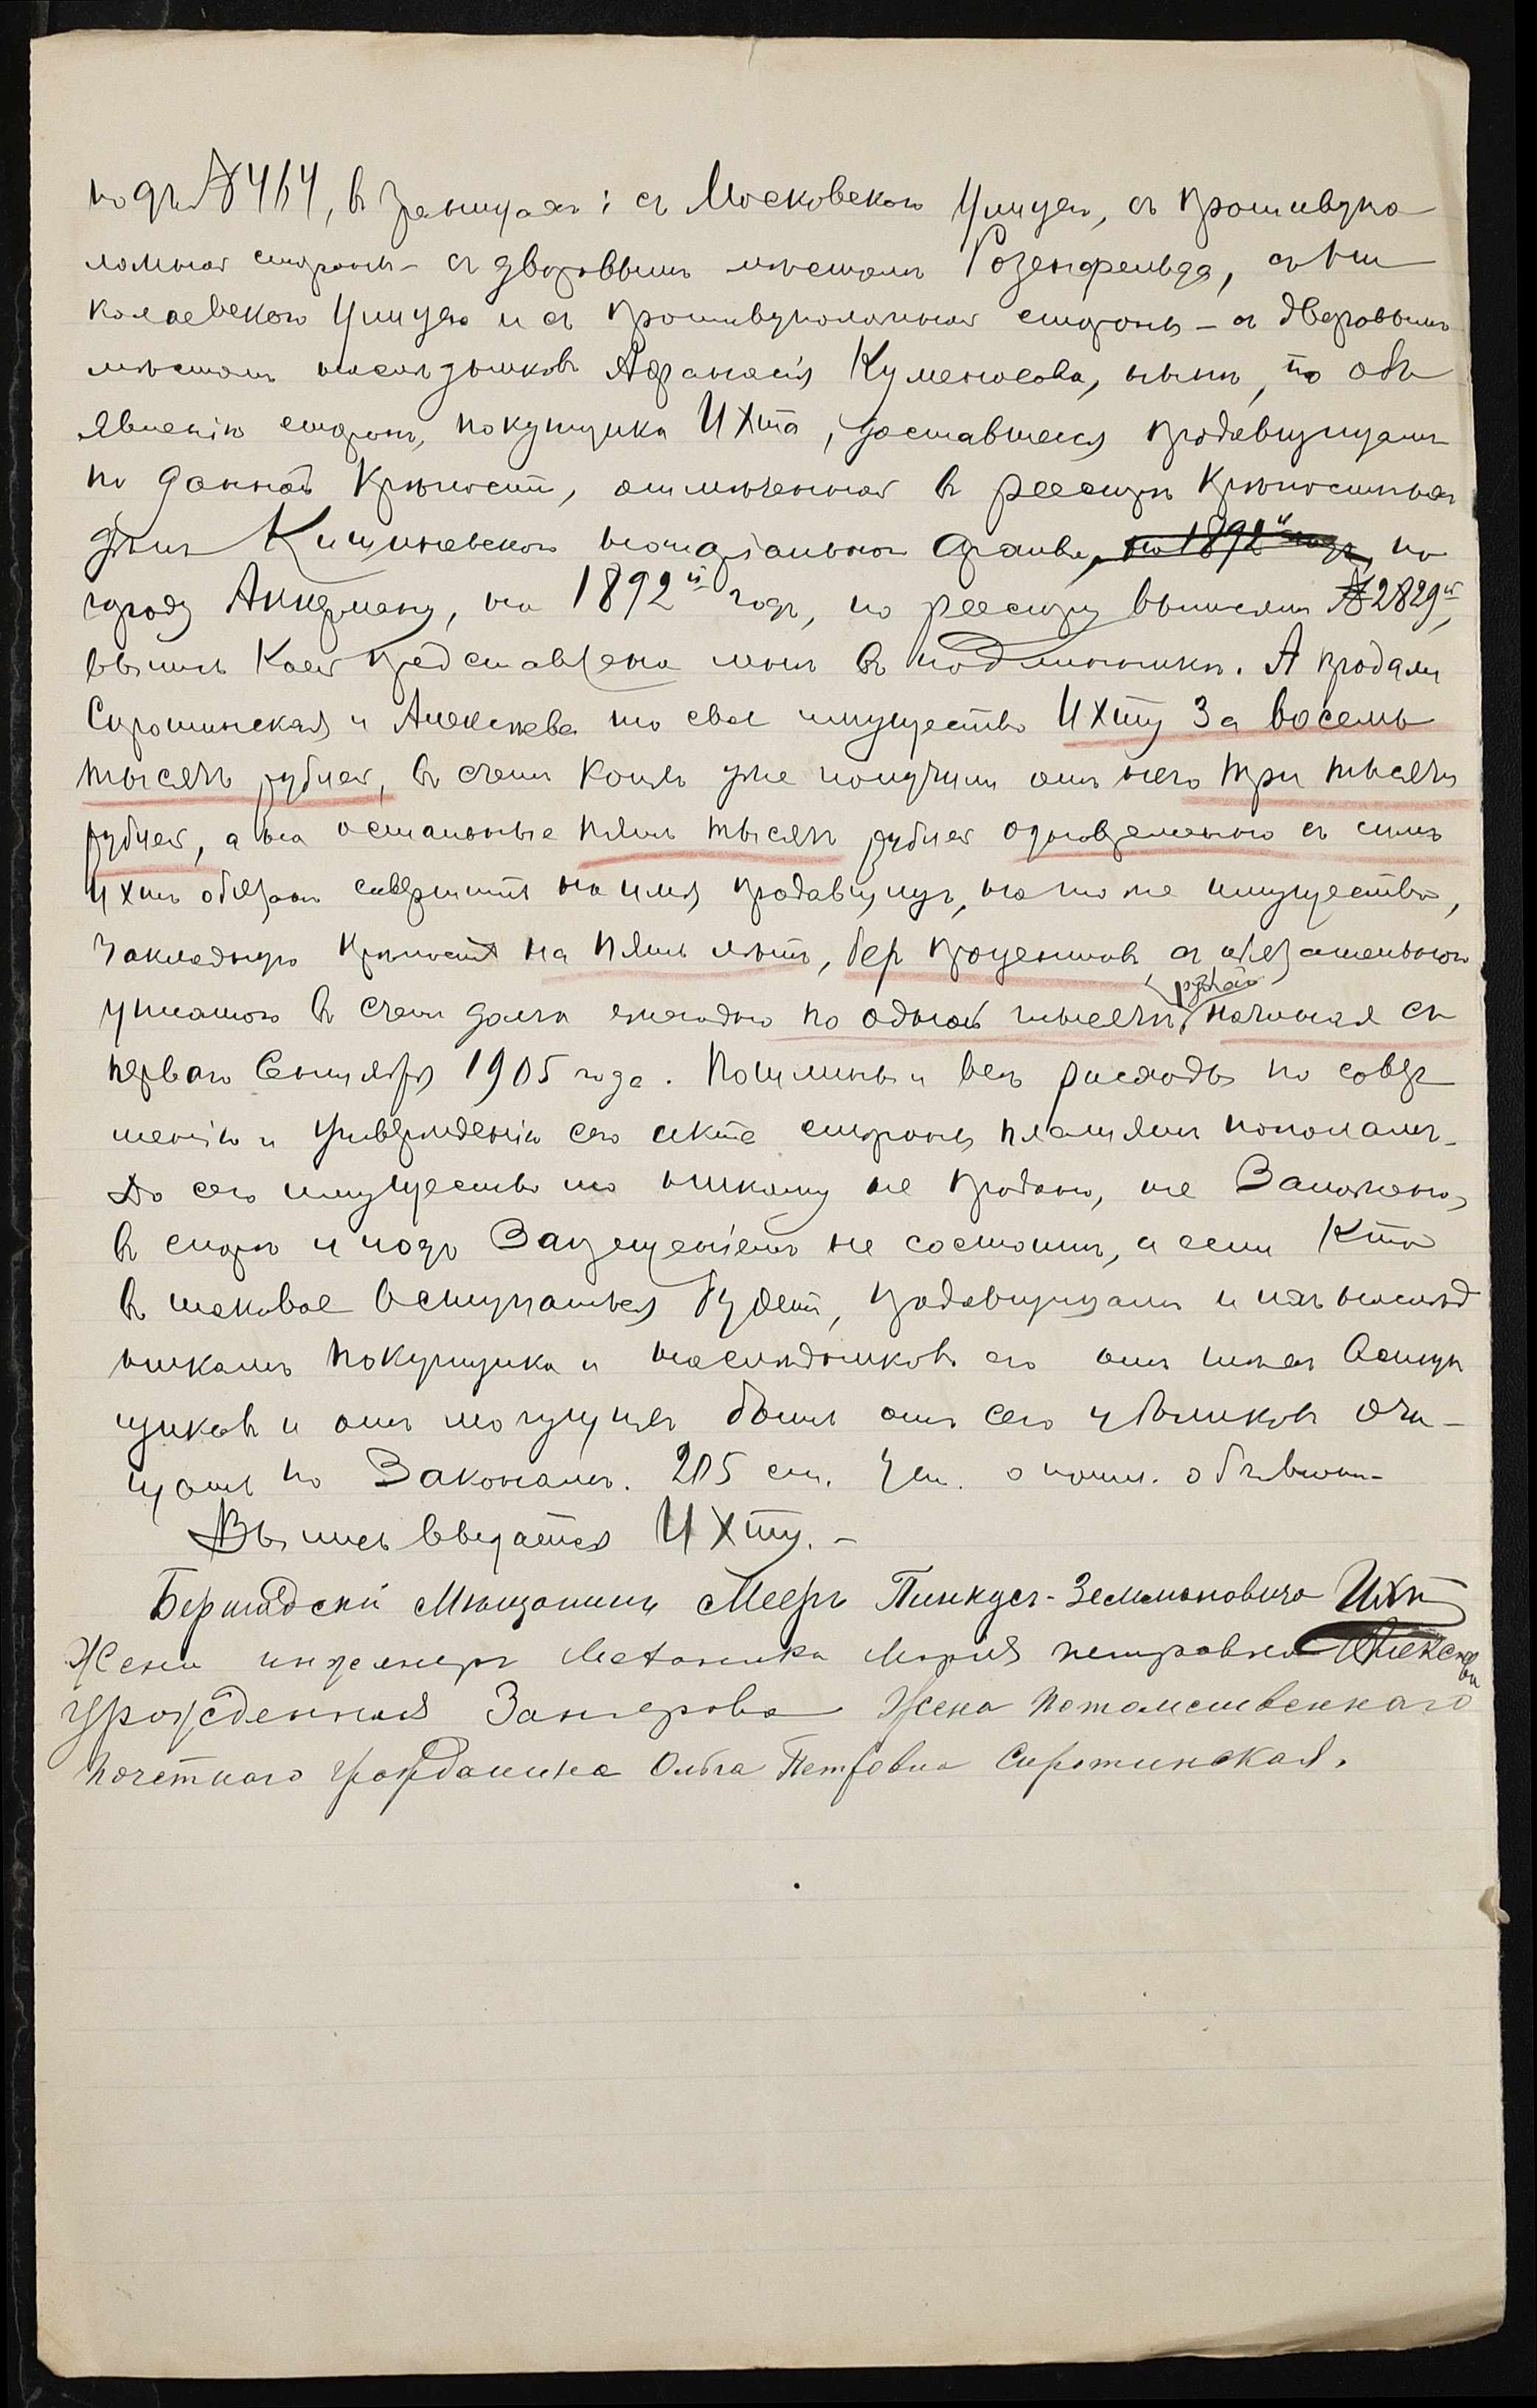 подъ № 464, въ границахъ: съ Московскою улицею, съ противупо
ложной стороны - съ дворовымъ мѣстомъ Розенфельда, съ Ни
колаевскою улицею и съ противуположной стороны - съ дворовымъ
мѣстомъ наслѣдниковъ Афанасія Куменюсова, нынѣ, по объ
явленію сторонъ, покупщика Ихта, доставшееся продавщицамъ
по данной крѣпости, отмѣченной въ реестрѣ крѣпостныхъ
дѣлъ Кишиневскаго нотаріальнаго архива, на 1892й годъ, по
городу Аккерману, на 1892й годъ, по реестру выписями № 2829й,
выпись коей представлена мнѣ въ подлинникѣ. А продали
Сиротинская и Алексѣева то свое имущество Ихту за восемь
тысячъ рублей, въ счетъ коихъ уже получили отъ него три тысячи
рублей, а на остальные пять тысячъ рублей одновременно съ симъ
Ихтъ обязанъ совершить на имя продавщицъ, на то же имущество,
закладную крѣпость на пять лѣтъ, безъ процентовъ съ обязательною
уплатою въ счетъ долга ежегодно по одной тысячѣ рублей начиная съ
перваго Сентября 1905 года. Пошлины и всѣ расходы по совер
шенію и утвержденію сего акта стороны платятъ пополамъ.
До сего имущество то никому не продано, не заложено,
въ спорѣ и подъ запрещеніемъ не состоитъ, а если кто
въ таковое вступаться будетъ, продавщицамъ и ихъ наслѣд
никамъ покупщика и наслѣдниковъ его отъ тѣхъ вступ
щиковъ и отъ могущихъ быть отъ сего убытковъ очи-
щать по законамъ. 205 ст. Уст. о пошл. объявлена.
Выпись выдается Ихту. -
Бершадскій Мѣщанинъ Мееръ Пинкусъ-Зельмановичъ Ихтъ
Жена инженеръ Механика Марія Петровна Алексѣева
урожденная Занкерова Жена Потомственнаго
почетнаго гражданина Ольга Петровна Сиротинская.